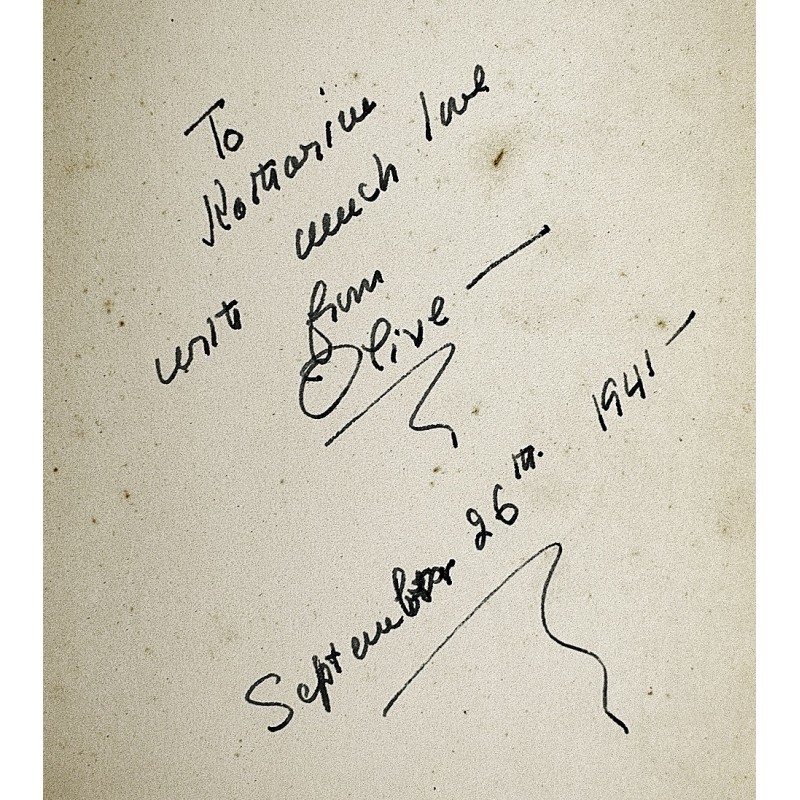 To
Katharine
with much love
from
Olive —
September 26th. 1941 -